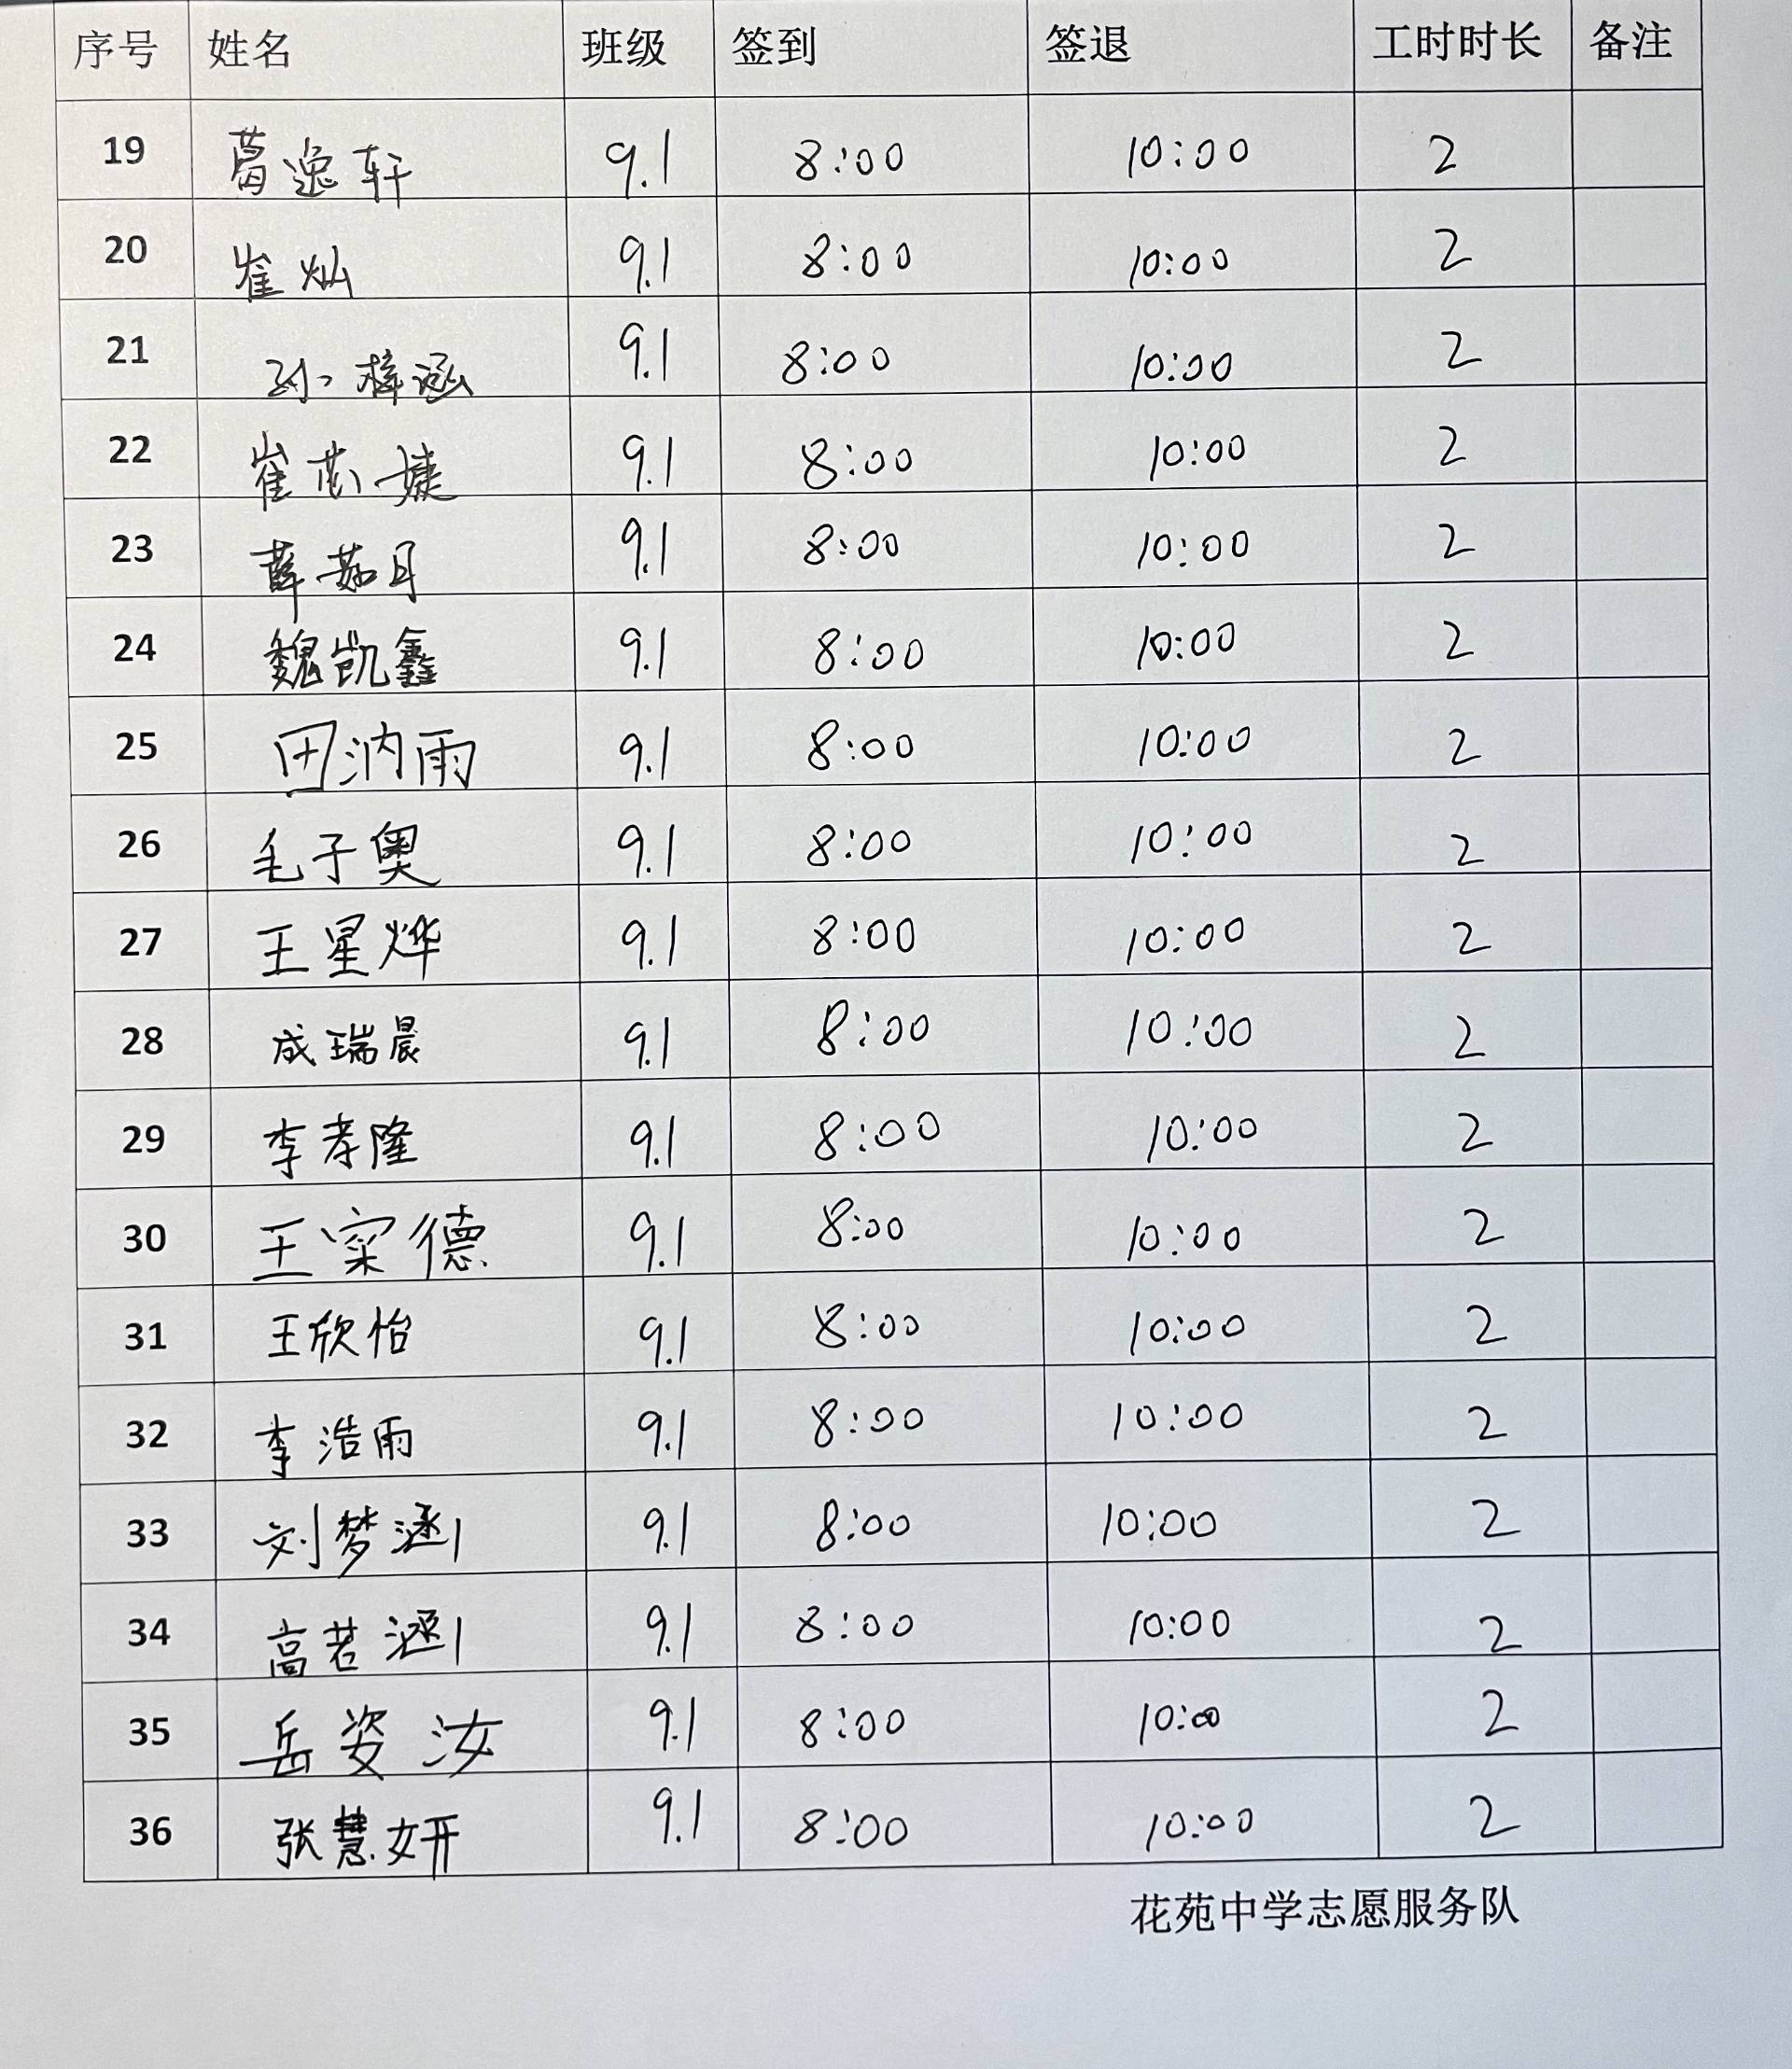 序号 姓名 班级 签到 签退 工时时长 备注
19 葛逸轩 9.1 8:00 10:00 2
20 崔灿 9.1 8:00 10:00 2
21 孙梓涵 9.1 8:00 10:00 2
22 崔芯婕 9.1 8:00 10:00 2
23 薛茹月 9.1 8:00 10:00 2
24 魏凯鑫 9.1 8:00 10:00 2
25 田汭雨 9.1 8:00 10:00 2
26 毛子奥 9.1 8:00 10:00 2
27 王星烨 9.1 8:00 10:00 2
28 成瑞晨 9.1 8:00 10:00 2
29 李孝隆 9.1 8:00 10:00 2
30 王寀德 9.1 8:00 10:00 2
31 王欣怡 9.1 8:00 10:00 2
32 李浩雨 9.1 8:00 10:00 2
33 刘梦涵 9.1 8:00 10:00 2
34 高若涵 9.1 8:00 10:00 2
35 岳姿汝 9.1 8:00 10:00 2
36 张慧妍 9.1 8:00 10:00 2
花苑中学志愿服务队